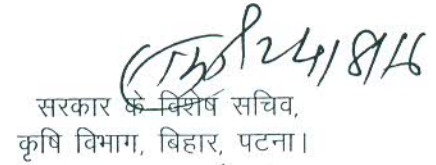 सरकार के विशेष सचिव,
कृषि विभाग, बिहार, पटना।